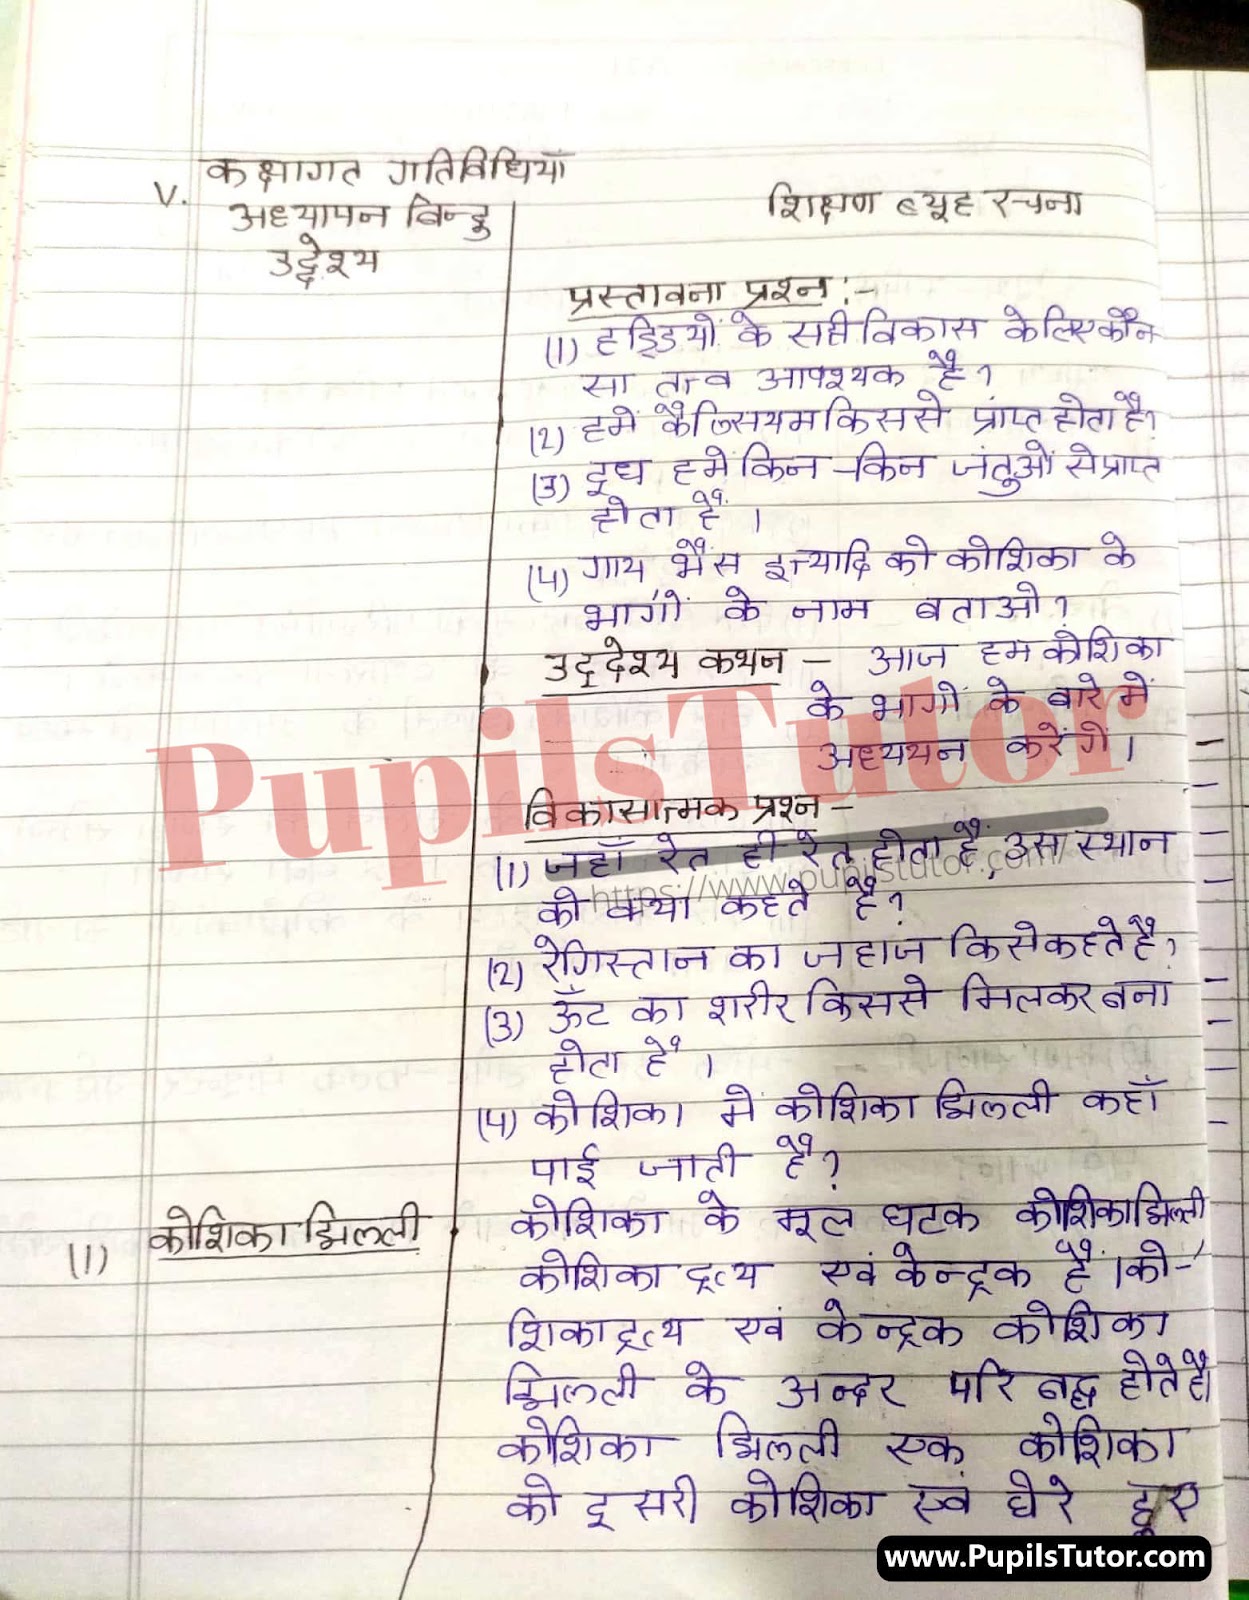 V. कक्षागत गतिविधियाँ
अध्यापन बिन्दु
उद्देश्य
शिक्षण व्यूह रचना
प्रस्तावना प्रश्न :-
(1) हड्डियों के सही विकास के लिए कौन
सा तत्व आवश्यक है ?
(2) हमें कैल्सियम किससे प्राप्त होता है?
(3) दूध हमें किन-किन जंतुओं से प्राप्त
होता है ।
(4) गाय भैंस इत्यादि की कोशिका के
भागों के नाम बताओ ?
उद्देश्य कथन - आज हम कोशिका
के भागों के बारे में
अध्ययन करेंगे ।
PupilsTutor
विकासात्मक प्रश्न -
(1) जहाँ रेत ही रेत होता है, उस स्थान
https://www.pupilstutor.com/
को क्या कहते है ?
(2) रेगिस्तान का जहाज किसे कहते है ?
(3) ऊँट का शरीर किससे मिलकर बना
होता है ।
(4) कोशिका में कोशिका झिल्ली कहाँ
पाई जाती है ?
(1) कोशिका झिल्ली
कोशिका के मूल घटक कोशिका झिल्ली
कोशिका द्रव्य एवं केन्द्रक है । को-
शिका द्रव्य एवं केन्द्रक कोशिका
झिल्ली के अन्दर परिबद्ध होते है।
कोशिका झिल्ली एक कोशिका
को दूसरी कोशिका एवं घेरे हुए
www.PupilsTutor.com